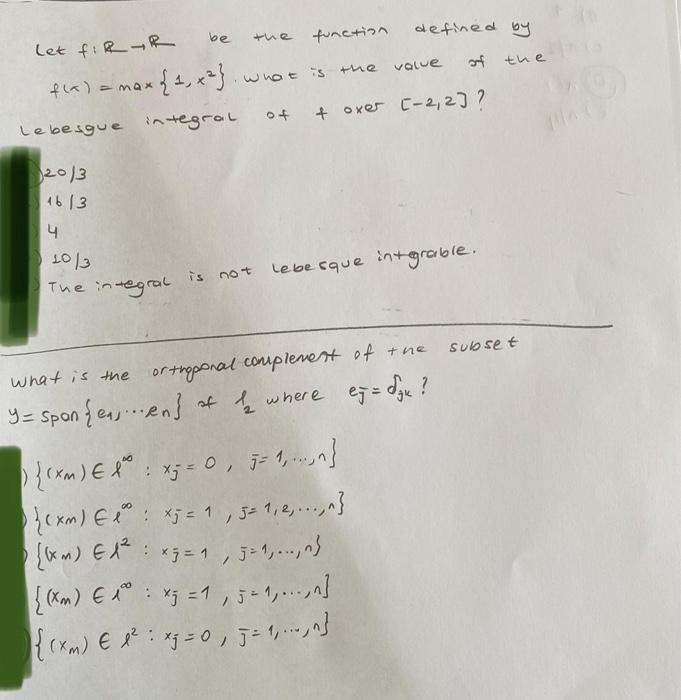 Let f: ℝ → ℝ be the function defined by
f(x) = max {1, x²}. What is the value of the
Lebesgue integral of f over [-2,2]?
) 20/3
) 16/3
4
) 10/3
) The integral is not Lebesque integrable.
What is the orthogonal complement of the subset
y = span {e₁, ... en} of l₂ where ej = δjk ?
) {(xm) ∈ l^∞ : xj = 0, j = 1, ..., n}
) {(xm) ∈ l^∞ : xj = 1, j = 1, 2, ..., n}
) {(xm) ∈ l² : xj = 1, j = 1, ..., n}
{(xm) ∈ l^∞ : xj = 1, j = 1, ..., n}
) {(xm) ∈ l² : xj = 0, j = 1, ..., n}